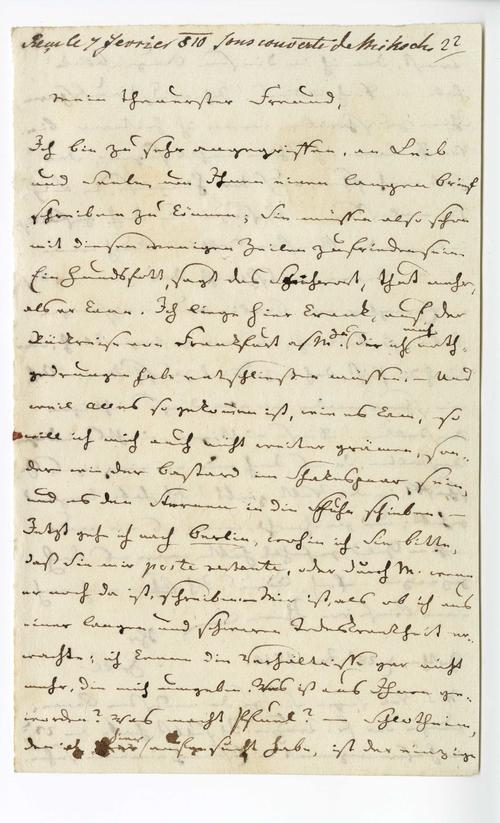 Reçu le 7 fevrier 810 sous couverte de Mr Koch 22
Mein theuerster Freund,
Ich bin zu sehr angegriffen, an Leib
und Seele, um Ihnen einen langen brief
schreiben zu können; Sie müssen also schon
mit diesen wenigen Zeilen zufrieden sein.
Ein Hundsfott, sagt das Sprichwort, thut mehr,
als er kann. Ich liege hier krank, auf der
Rückreise von Frankfurt a/M. da (der ich mich noth-
gedrungen habe entschließen müssen. – Und
weil Alles so gekommen ist, wie es kam, so
will ich mich auch nicht weiter grämen, son-
dern wie der bastard im Shakespear sein,
und es den Sternen in die Schuhe schieben. –
Jetzt geh ich nach Berlin, wohin ich Sie bitte,
daß Sie mir poste restante, oder durch M. wenn
er noch da ist, schreiben. Mir ist, als ob ich aus
einer langen und schweren Todeskrankheit er-
wachte; ich kenne die Verhältnisse gar nicht
mehr, die mich umgeben. Was ist aus Ihnen ge-
worden? Was macht Pfuel? – Schlotheim,
den ich hier aufgesucht habe, ist der einzige